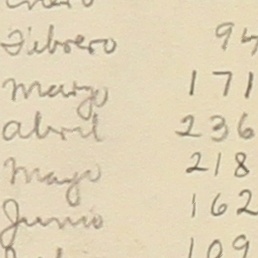 Enero
Febrero 94
Marzo 171
abril 236
Mayo 218
Junio 162
109